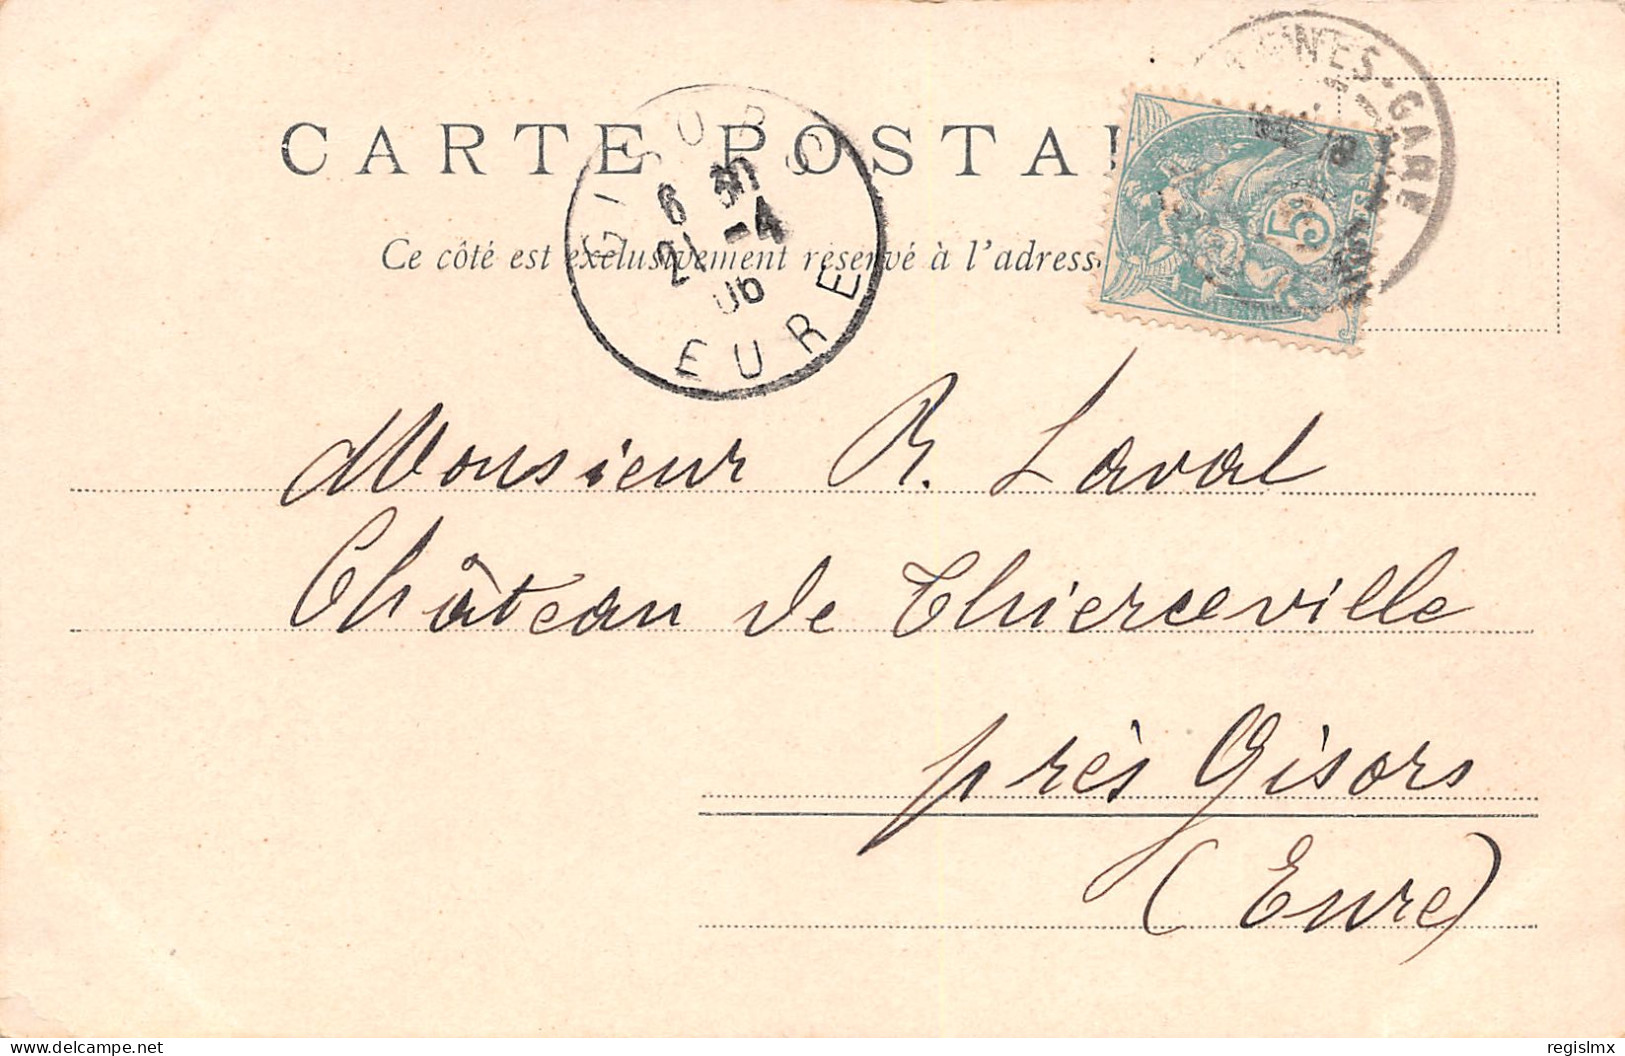 CARTE POSTAL
Ce côté est exclusivement réservé à l'adress
GISORS
6 30
21 -4
06
EURE
NES-GARE
5
Monsieur R. Laval
Château de Thierceville
près Gisors
(Eure)
regislmx
delcampe.net